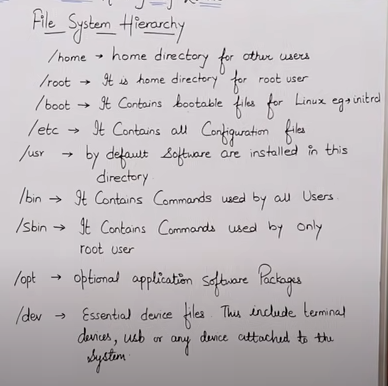 File System Hierarchy
/home → home directory for other users
/root → It is home directory for root user
/boot → It Contains bootable files for Linux eg→initrd
/etc → It Contains all Configuration files
/usr → by default Software are installed in this
directory.
/bin → It Contains Commands used by all Users.
/Sbin → It Contains Commands used by only
root user
/opt → optional application Software Packages
/dev → Essential device files. This include terminal
devices, usb or any device attached to the
System.